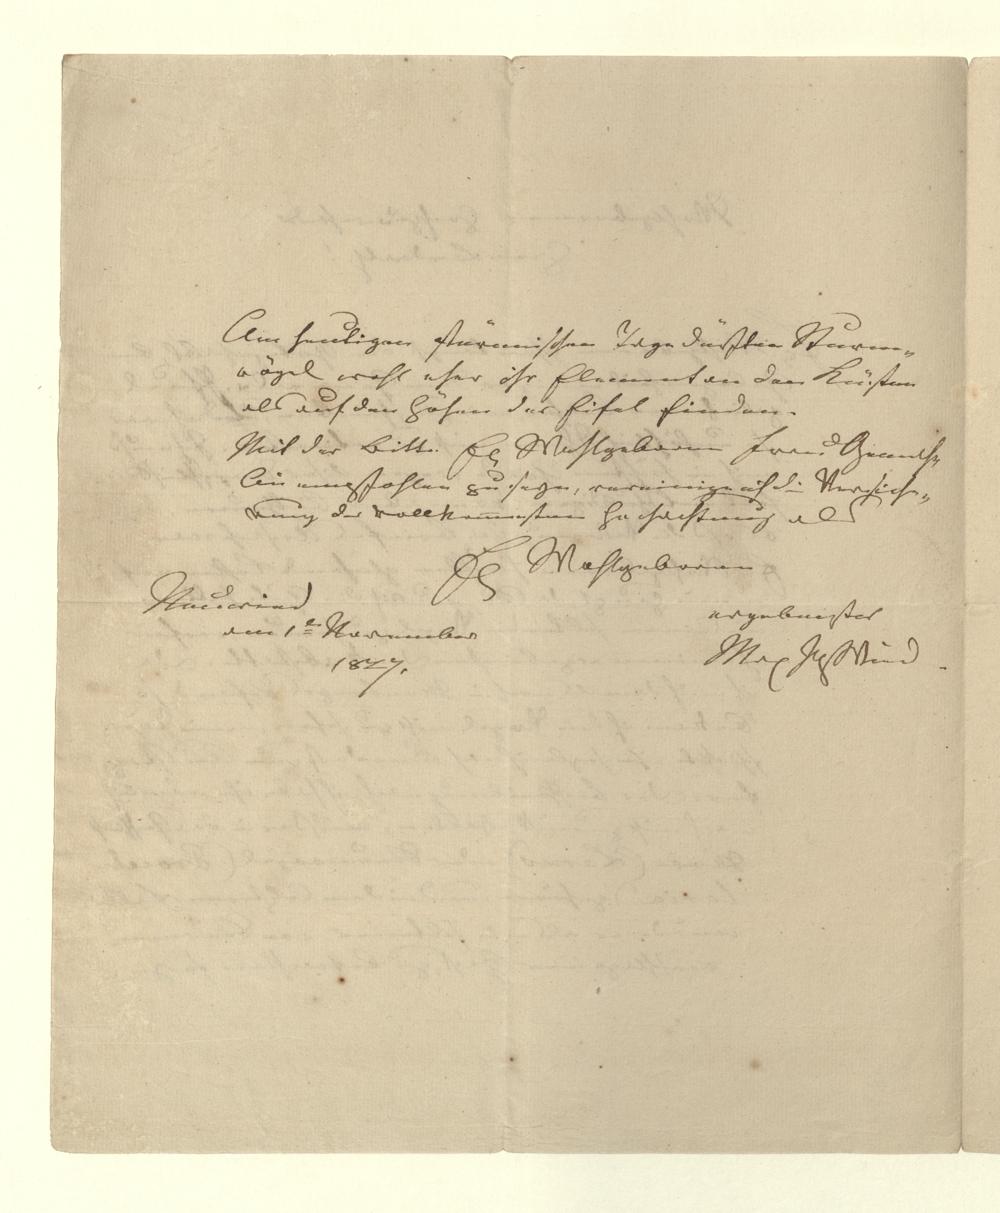 Am heutigen stürmischen Tage dürften Sturm„
vögel wohl eher ihr Element an den Küsten
als auf den Höhen der Eifel finden.
Mit der Bitte Ew Wohlgeboren
empfohlen zu seyn, vereinige ich die Versiche„
rung der vollkommensten Hochachtung als
Ew Wohlgeboren
Neuwied
am 1ten November
1827.
ergebenster
Max Pz Wied